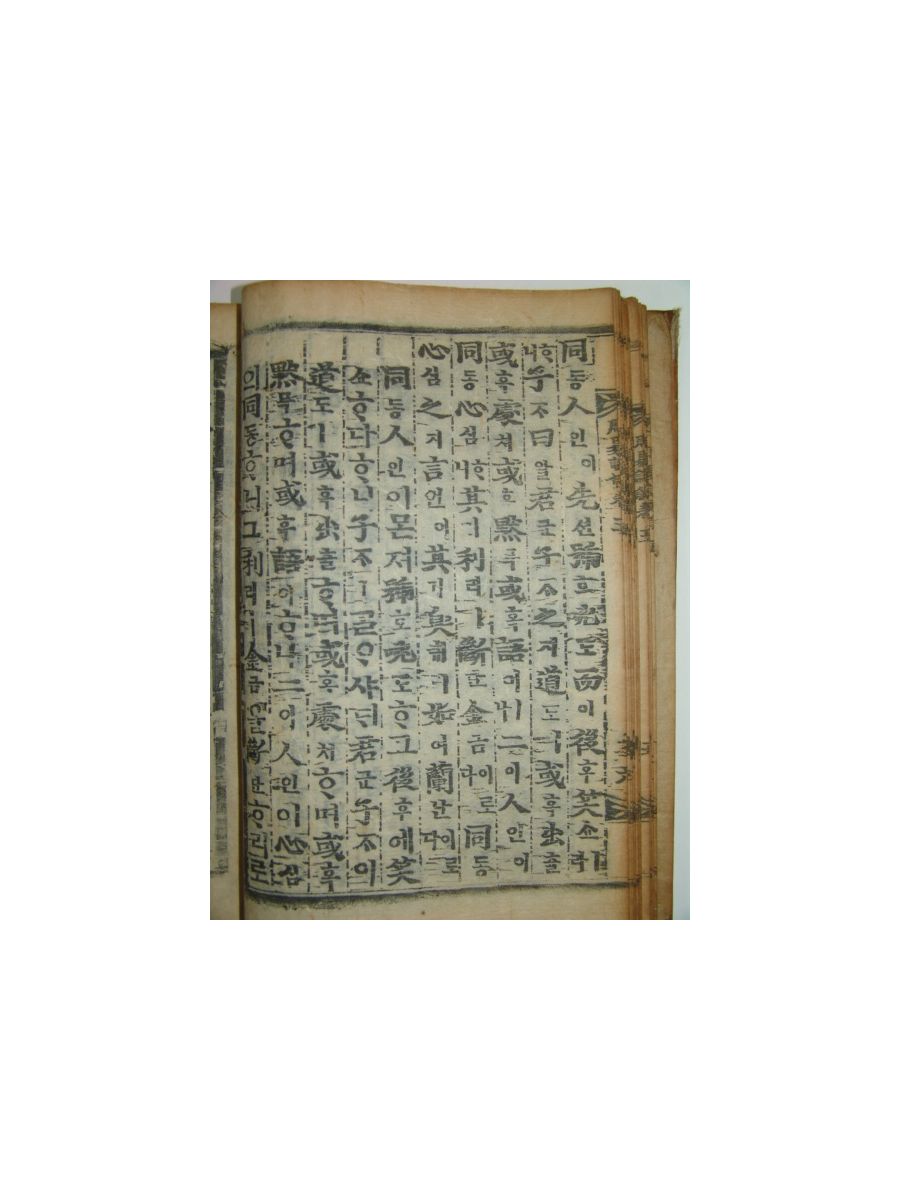 周易諺解卷五
同동人인이先션號호咷도而이後후笑쇼라
ᄒᆞ니子ᄌᆞㅣ曰왈君군子ᄌᆞ之지道도ㅣ或혹出츌
或혹處쳐或혹黙믁或혹語어ㅣ나二이人인이
同동心심ᄒᆞ니其기利리ㅣ斷단金금이로다同동
心심之지言언이其기臭ᄎᆔㅣ如여蘭난이로다
同동人인이몬져號호咷도ᄒᆞ고後후에笑
쇼ᄒᆞ다ᄒᆞ니子ᄌᆞㅣᄀᆞᆯᄋᆞ샤ᄃᆡ君군子ᄌᆞ의
道도ㅣ或혹出츌ᄒᆞ며或혹處쳐ᄒᆞ며或혹
黙믁ᄒᆞ며或혹語어ᄒᆞ나二이人인이心심
이同동ᄒᆞ니그利리ㅣ金금을斷단ᄒᆞ리로